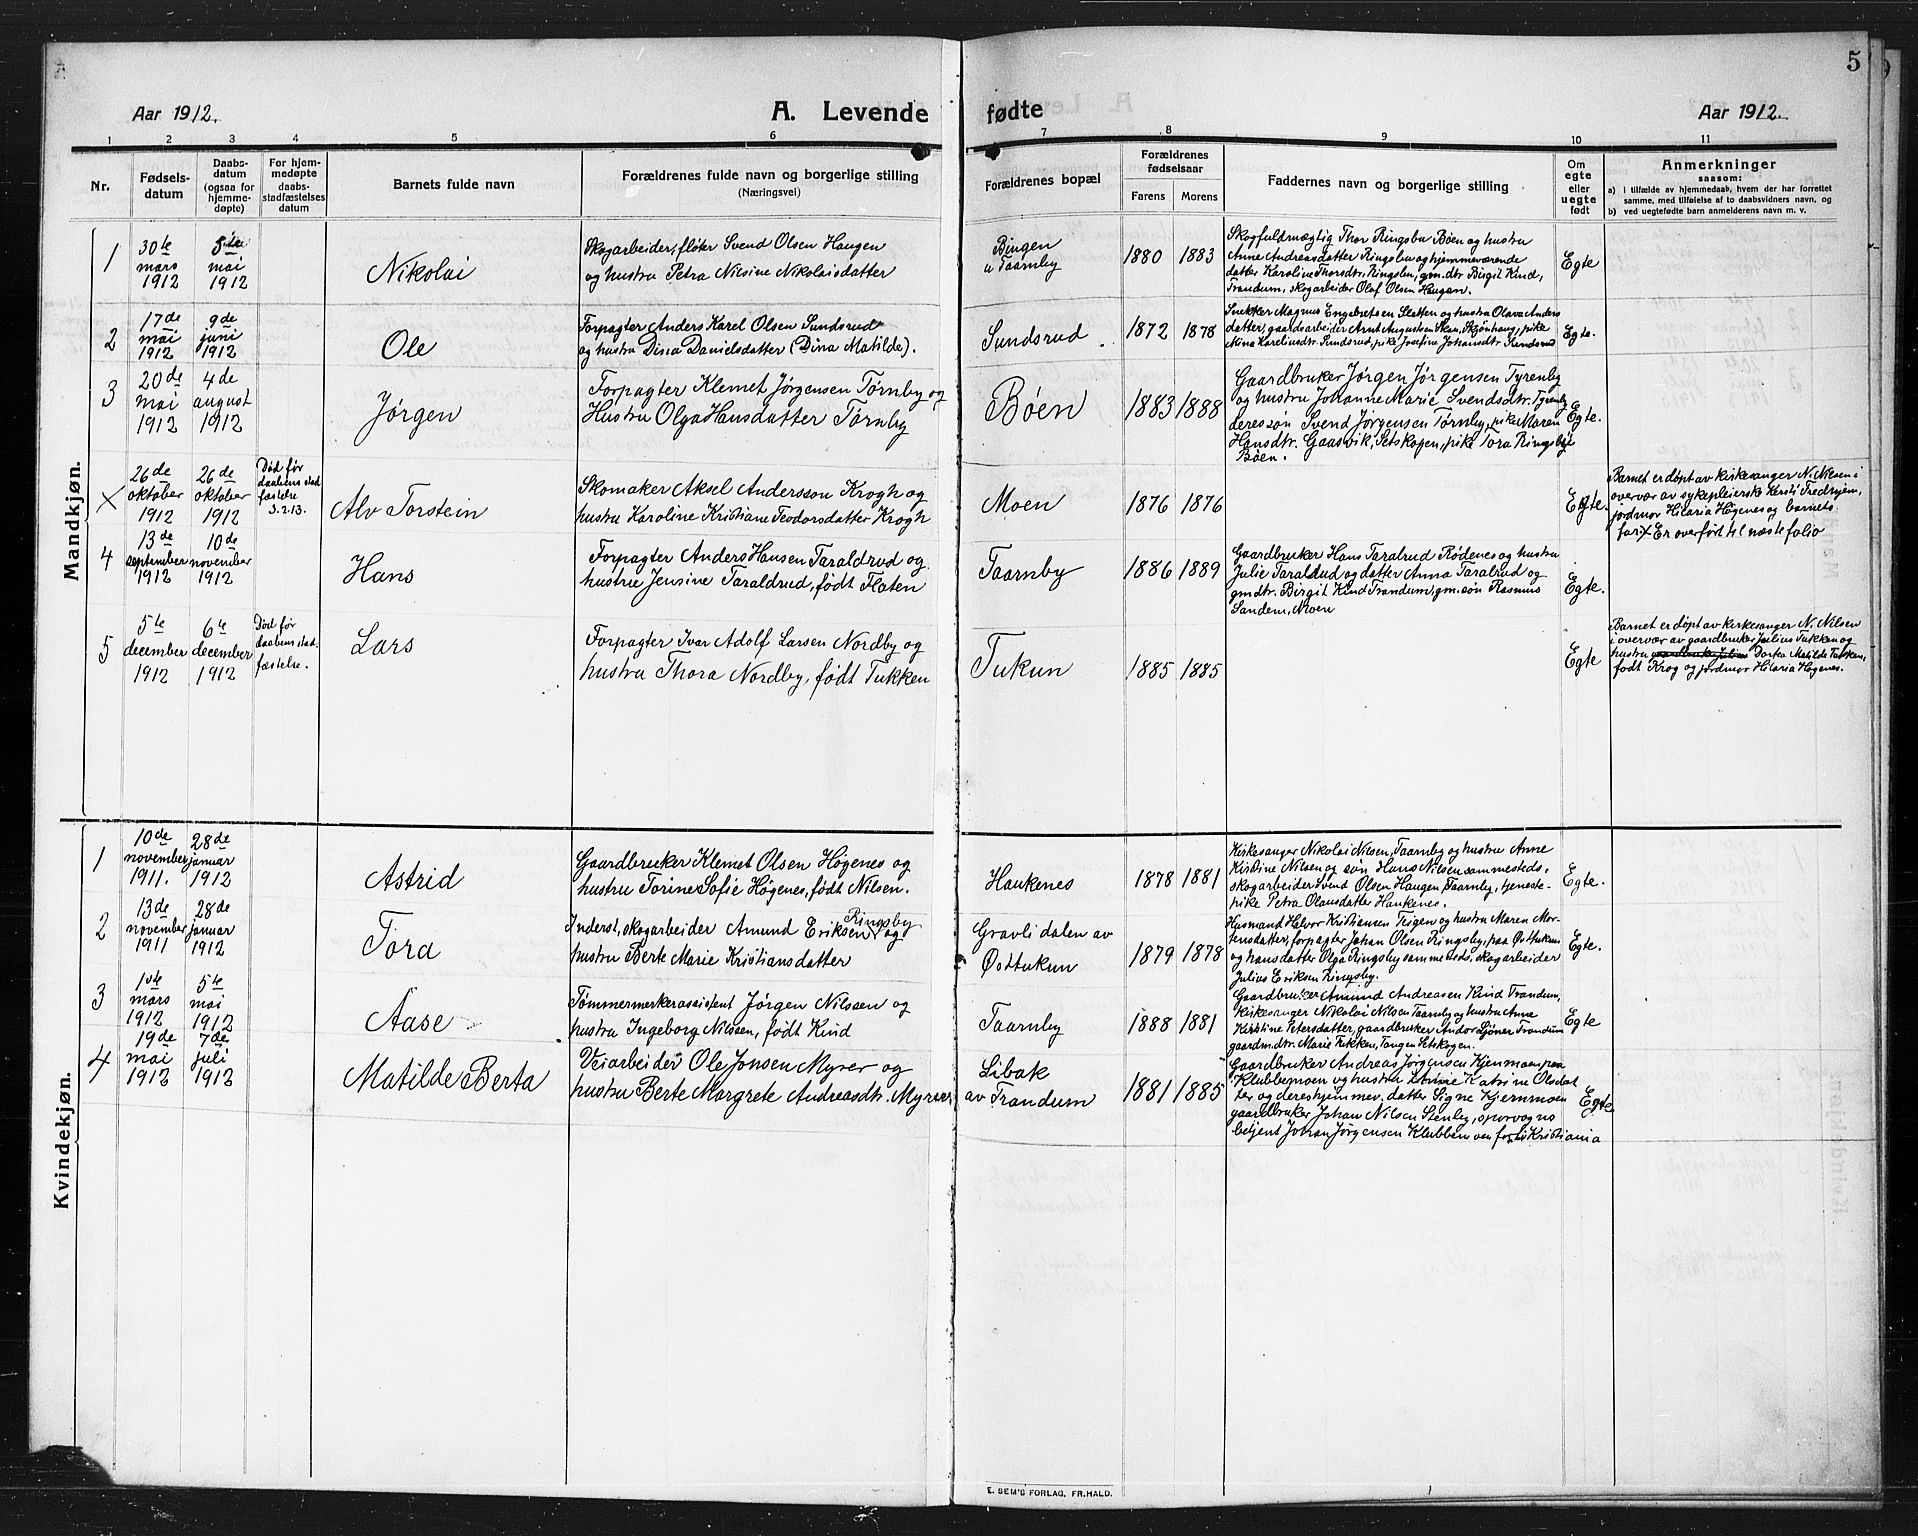 5
Aar 1912.
A. Levende fødte
Aar 1912.
1 2 3 4 5 6 7 8 9 10 11
Nr.
Fødsels-
datum
Daabs-
datum
(ogsaa for
hjemme-
døpte)
For hjem-
medøpte
daabs-
stadfæstelses
datum
Barnets fulde navn
Forældrenes fulde navn og borgerlige stilling
(Næringsvei)
Forældrenes bopæl
Forældrenes
fødselsaar
Farens Morens
Faddernes navn og borgerlige stilling
Om
egte
eller
uegte
født
Anmerkninger
saasom:
a) i tilfælde av hjemmedaab, hvem der har forrettet
samme, med tilføielse af to daabsvidners navn, og
b) ved uegtefødte barn anmelderens navn m. v.
Mandkjøn.
1
30te
mars
1912
5te
mai
1912
Nikolai
Skogarbeider, fløter Svend Olsen Haugen
og hustru Petra Nilsine Nikolaisdatter
Bingen
u Taarnby
1880 1883
Skogfuldmægtig Thor Ringsbu Bøen og hustru
Anne Andreasdatter Ringsby og hjemmeværende
datter Karoline Thorsdtr. Ringsby, gm.dtr Birgit Kind,
Trandum, skogarbeider Olaf Olsen Haugen.
Egte
2
17de
mai
1912
9de
juni
1912
Ole
Forpagter Anders Karel Olsen Sundsrud
og hustru Dina Danielsdatter (Dina Matilde).
Sundsrud
1872 1878
Snekker Magnus Engebretsen Sletten og hustru Olava Anders
datter, gaardsarbeider Arnt Augustsen Skau, Skjønhaug, pike
Mina Karelinsdtr. Sundsrud, pike Josefine Johansdtr Sundsrud
Egte.
3
20de
mai
1912
4de
august
1912
Jørgen
Forpagter Klemet Jørgensen Tørnby og
Hustru Olga Hansdatter Tørnby
Bøen
1883 1888
Gaardbruker Jørgen Jørgensen Tyrenby
og hustru Johanne Marie Svendsdtr. Tyrenby
deres søn Svend Jørgensen Tørnby, pike Maren
Hansdtr. Gaasvik, Setskogen, pike Tora Ringsby
Bøen.
Egte.
X
26de
oktober
1912
26de
oktober
1912
Død før
daabens stad
fæstelse
3.2.13.
Alv Torstein
Skomaker Aksel Andersson Krogh og
hustru Karoline Kristiane Teodorsdatter Krogh
Moen
1876 1876
Egte.
Barnet er døpt av kirkesanger N. Nilsen i
overvær av sykepleierske Kersti Fredhjem,
jordmor Hilaria Høgenes og barnets
far. X Er overført til næste folio
4
13de
september
1912
10de
november
1912
Hans
Forpagter Anders Hansen Taraldrud og
hustru Jensine Taraldrud, født Flaten
Taarnby
1886 1889
Gaardbruker Hans Taralrud Rødenes og hustru
Julie Taraldrud og datter Anna Taralrud og
gmdtr. Birgit Kind Trandum, gm.søn Rasmus
Sandem, Moen
Egte.
5
5te
december
1912
6te
december
1912
Død før
daabens stad-
fæstelse.
Lars
Forpagter Ivar Adolf Larsen Nordby og
hustru Thora Nordby, født Tukken
Tukun
1885 1885
Egte
Barnet er døpt av kirkesanger N. Nilsen
i overvær av gaardbruker Julius Tukken og
hustru gaardbruker Julius Dortea Matilde Tukken,
født Krog og jordmor Hilaria Høgenes.
Kvindekjøn.
1
10de
november
1911.
28de
januar
1912
Astrid
Gaardbruker Klemet Olsen Høgenes og
hustru Torine Sofie Høgenes, født Nilsen.
Haukenes
1878 1881
Kirkesanger Nikolai Nilsen, Taarnby og hustru Anne
Kirstine Nilsen og søn Hans Nilsen sammesteds,
skogarbeider Svend Olsen Haugen, Taarnby, tjeneste-
pike Petra Olausdatter Haukenes.
Egte.
2
13de
november
1911
28de
januar
1912
Tora
Inderst, skogarbeider Amund Eriksen Ringsby og
hustru Berte Marie Kristiansdatter
Gravlidalen av
Østtukun
1879 1878
Husmand Halvor Kristiansen Teigen og hustru Maren Mor-
tensdatter, forpagter Johan Olsen Ringsby, paa Østtukun
og hans datter Olga Ringsby sammesteds, skogarbeider
Julius Eriksen Ringsby.
Egte.
3
1ste
mars
1912
5te
mai
1912
Aase
Tømmermerkerassistent Jørgen Nilssen og
hustru Ingeborg Nilssen, født Kind
Taarnby
1888 1881
Gaardbruker Amund Andreasen Kind Trandum,
Kirkesanger Nikolai Nilsen Taarnby og hustru Anne
Kirstine Petersdatter, gaardbruker Andor Sjøner Trandum
gaardm.dtr. Marie Tukken, Tangen Setskogen.
Egte
4
19de
mai
1912
7de
juli
1912
Matilde Berta
Veiarbeider Ole Jonsen Myrer og
hustru Berte Margrete Andreasdtr. Myrer
Libak
av Trandum
1881 1885
Gaardbruker Andreas Jørgensen Kjenmoen paa
Klubbemoen og hustru Katrine Olsdat
ter og dereshjemmev. datter Signe Kjernmoen
gaardbruker Johan Nilsen Stenby, sporvogns
betjent Johan Jørgensen Klubben Kristiania
Egte
E. SEM'S FORLAG, FR.HALD.